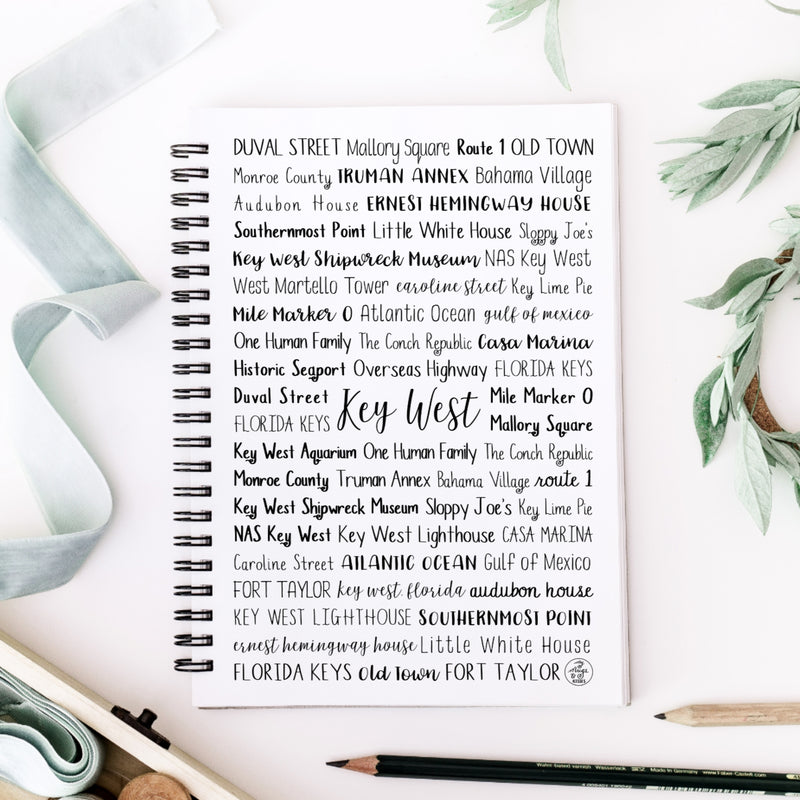 DUVAL STREET Mallory Square Route 1 OLD TOWN
Monroe County TRUMAN ANNEX Bahama Village
Audubon House ERNEST HEMINGWAY HOUSE
Southernmost Point Little White House Sloppy Joe's
Key West Shipwreck Museum NAS Key West
West Martello Tower caroline street Key Lime Pie
Mile Marker 0 Atlantic Ocean gulf of mexico
One Human Family The Conch Republic Casa Marina
Historic Seaport Overseas Highway FLORIDA KEYS
Duval Street Key West Mile Marker 0
FLORIDA KEYS Mallory Square
Key West Aquarium One Human Family The Conch Republic
Monroe County Truman Annex Bahama Village route 1
Key West Shipwreck Museum Sloppy Joe's Key Lime Pie
NAS Key West Key West Lighthouse CASA MARINA
Caroline Street ATLANTIC OCEAN Gulf of Mexico
FORT TAYLOR key west, florida audubon house
KEY WEST LIGHTHOUSE SOUTHERNMOST POINT
ernest hemingway house Little White House
FLORIDA KEYS Old Town FORT TAYLOR
Made in Germany www.Faber-Castell